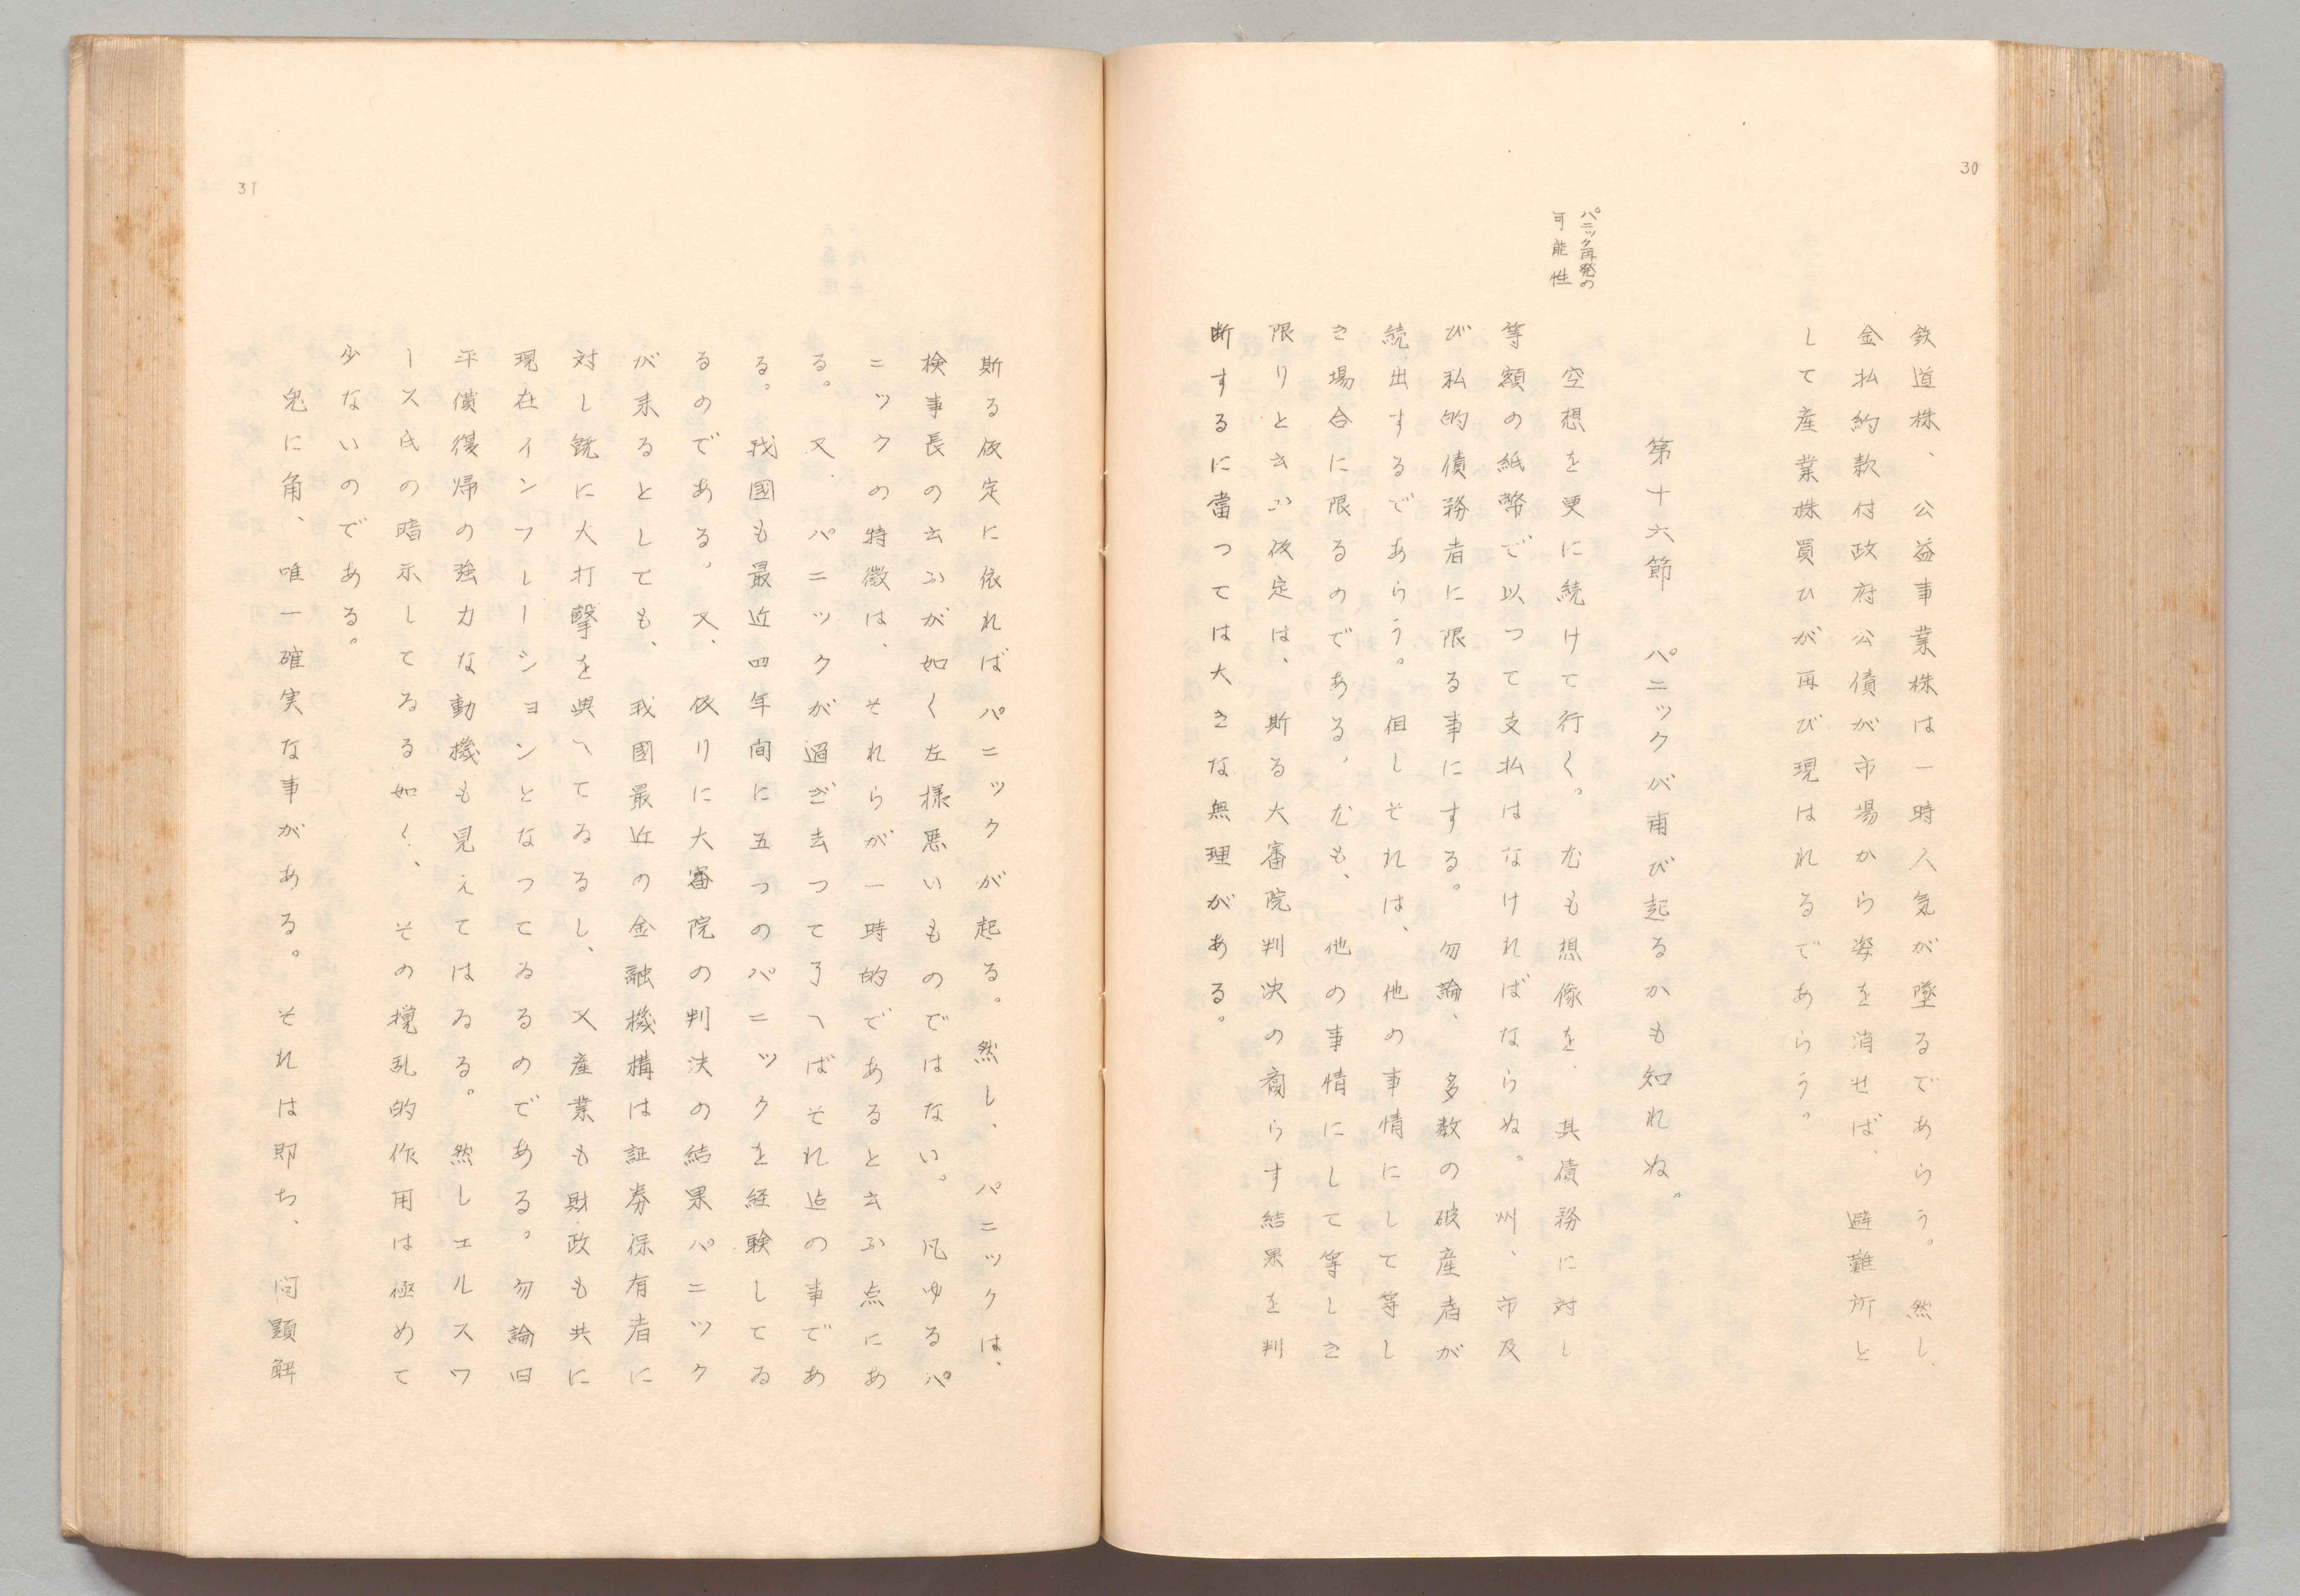 30
鉄道株、公益事業株は一時人気が墜るであらう。然し、
金払約款付政府公債が市場から姿を消せば、避難所と
して産業株買ひが再び現はれるであらう。
第十六節　パニックが再び起るかも知れぬ。
パニック再発の
可能性
空想を更に続けて行く。尤も想像を、其債務に対し
等額の紙幣で以つて支払はなければならぬ。州、市及
び私的債務者に限る事にする。勿論、多数の破産者が
続出するであらう。但しそれは、他の事情にして等し
き場合に限るのである。尤も、他の事情にして等しき
限りと云ふ仮定は、斯る大審院判決の齎らす結果を判
断するに當つては大きな無理がある。
斯る仮定に依ればパニックが起る。然し、パニックは、
検事長の云ふが如く左様悪いものではない。凡ゆるパ
ニックの特徴は、それらが一時的であると云ふ点にあ
る。又、パニックが過ぎ去つて了へばそれ迄の事であ
る。我國も最近四年間に五つのパニックを経験してゐ
るのである。又、仮りに大審院の判決の結果パニック
が来るとしても、我國最近の金融機構は証券保有者に
対し既に大打撃を與へてゐるし、又産業も財政も共に
現在インフレーションとなつてゐるのである。勿論旧
平價復帰の強力な動機も見えてはゐる。然しエルスワ
ース氏の暗示してゐる如く、その撹乱的作用は極めて
少ないのである。
兎に角、唯一確実な事がある。それは即ち、問題解
31